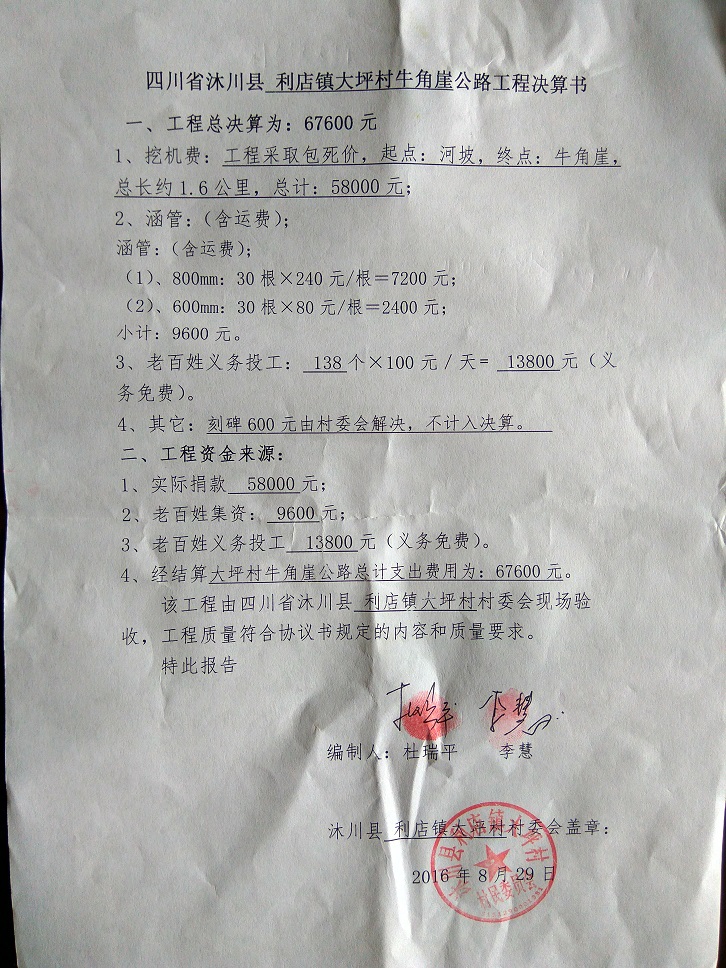 四川省沐川县 利店镇大坪村牛角崖公路工程决算书
一、工程总决算为：67600 元
1、挖机费：工程采取包死价，起点：河坡，终点：牛角崖，
总长约 1.6 公里，总计：58000 元；
2、涵管：（含运费）；
涵管：（含运费）；
（1）、800mm：30 根×240 元/根＝7200 元；
（2）、600mm：30 根×80 元/根＝2400 元；
小计：9600 元。
3、老百姓义务投工： 138 个×100 元／天= 13800 元（义
务免费）。
4、其它：刻碑 600 元由村委会解决，不计入决算。
二、工程资金来源：
1、实际捐款 58000 元；
2、老百姓集资： 9600 元；
3、老百姓义务投工 13800 元（义务免费）。
4、经结算大坪村牛角崖公路总计支出费用为：67600 元。
该工程由四川省沐川县 利店镇大坪村村委会现场验
收，工程质量符合协议书规定的内容和质量要求。
特此报告
李慧
编制人：杜瑞平 李慧
沐川县 利店镇大坪村村委会盖章：
2016 年 8 月 29 日
沐川县利店镇大坪村
村民委员会